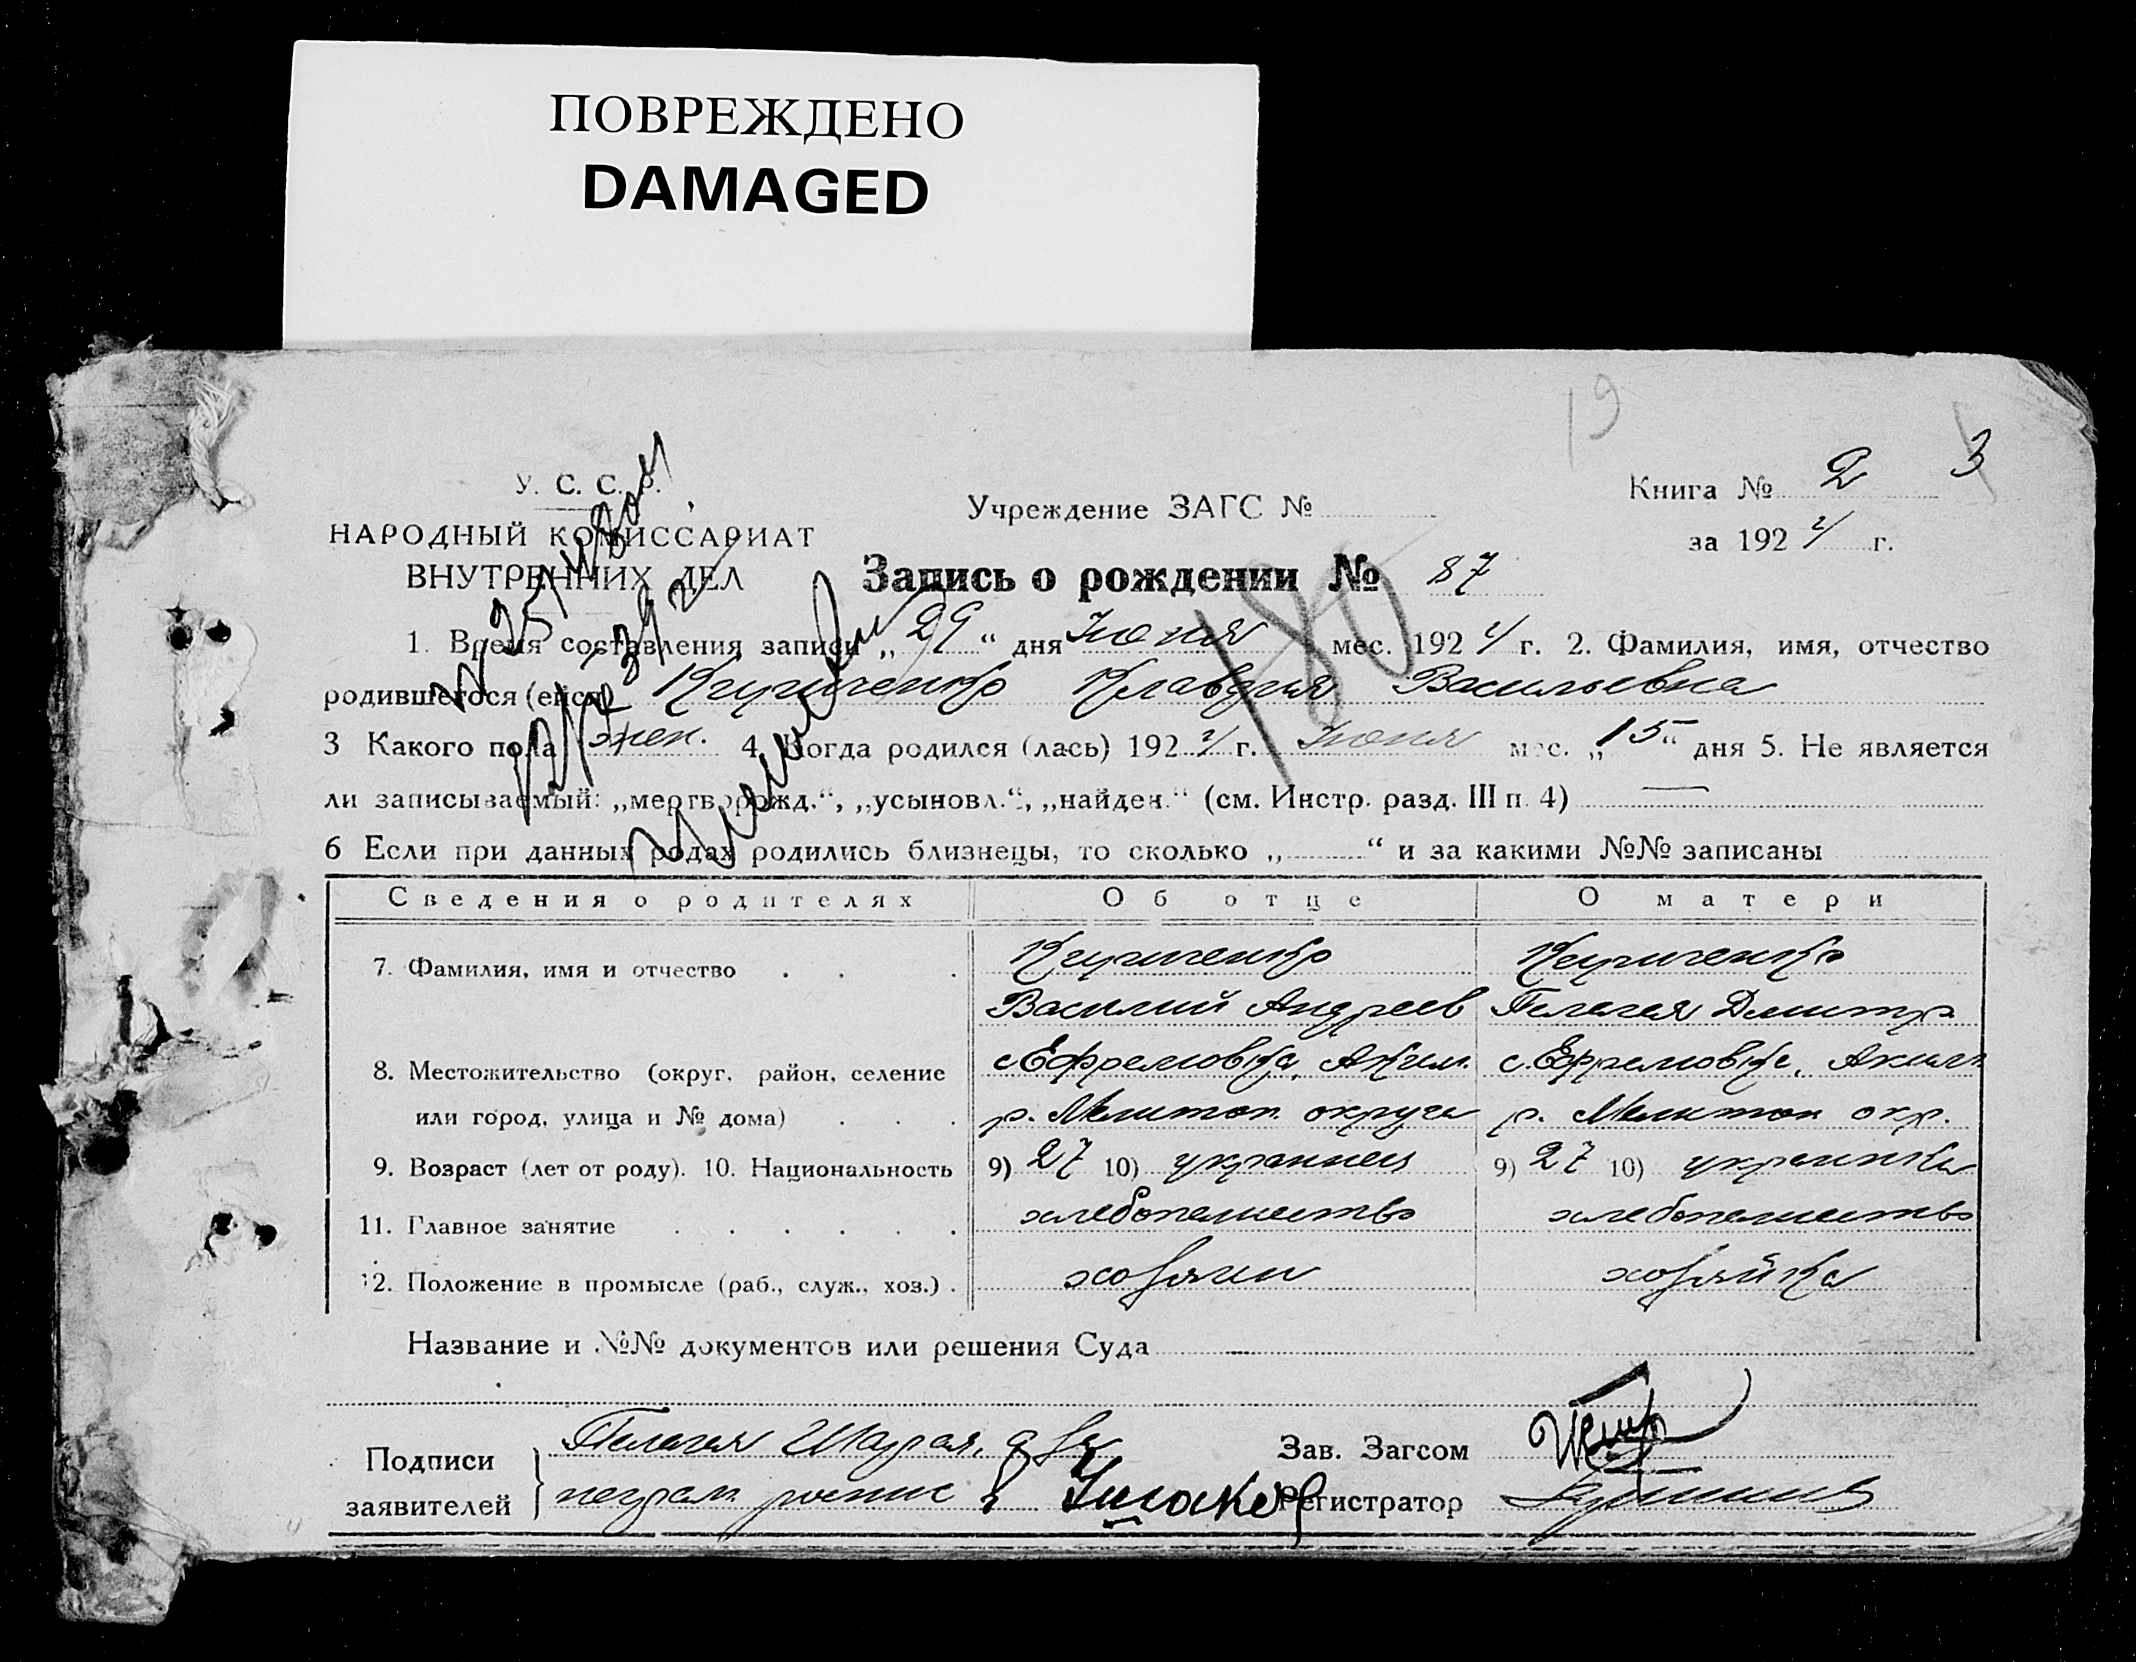 ПОВРЕЖДЕНО
DAMAGED
19
У. С. С. Р.
НАРОДНЫЙ КОМИССАРИАТ
ВНУТРЕННИХ ДЕЛ
Учреждение ЗАГС №
Книга № 2 3
за 1924 г.
Запись о рождении № 87
180
1. Время составления записи „29“ дня Июня мес. 1924 г. 2. Фамилия, имя, отчество
родившегося (ейся) Клавдия Васильевна
3 Какого пола жен. 4. Когда родился (лась) 1924 г. Июня мес. „15“ дня 5. Не является
ли записываемый: „мертворожд.“, „усыновл.“, „найден.“ (см. Инстр. разд. III п. 4) —
6 Если при данных родах родились близнецы, то сколько „ “ и за какими №№ записаны
Сведения о родителях Об отце О матери
7. Фамилия, имя и отчество
Василий Андреев Пелагея Дмитр
8. Местожительство (округ, район, селение с Ефремовка, Аким. с. Ефремовка, Аким
или город, улица и № дома) р. Мелитоп округа р. Мелитоп окр.
9. Возраст (лет от роду). 10. Национальность 9) 27 10) украинец 9) 27 10) украинка
11. Главное занятие хлебопашество хлебопашество
12. Положение в промысле (раб., служ., хоз.) хозяин хозяйка
Название и №№ документов или решения Суда —
Подписи Пелагея
заявителей неграм
Зав. Загсом
Регистратор